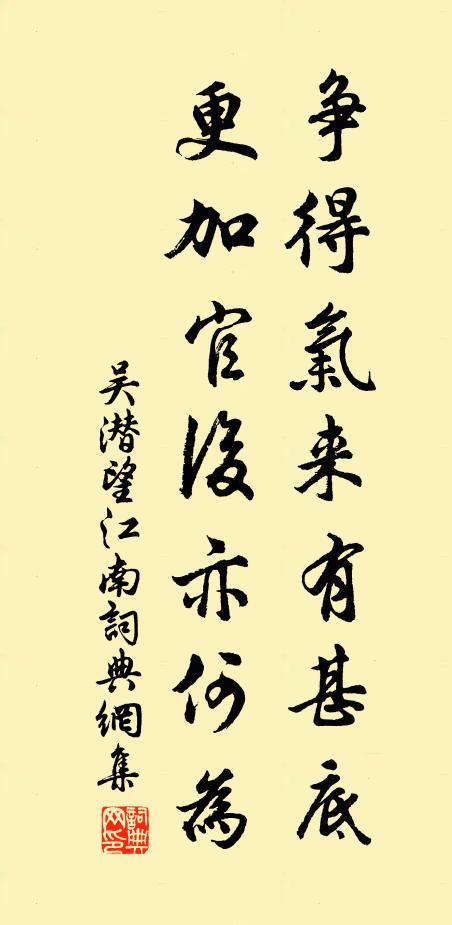 争得氣来有甚底
更加官後亦何為
吴潜望江南詞典網集
詞典网印